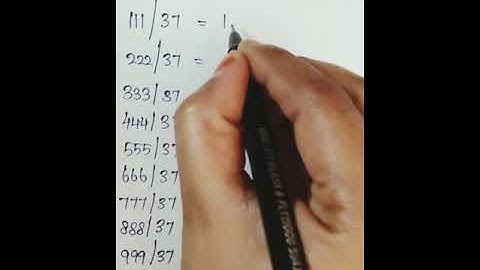 111/37 = 1
222/37 =
333/37
444/37
555/37
666/37
777/37
888/37
999/37